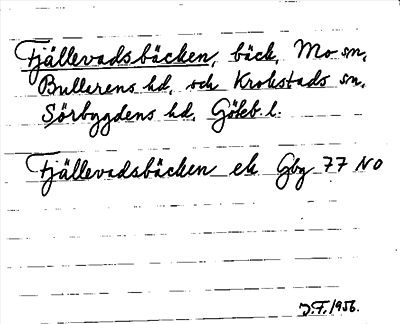 Fjällevadsbäcken, bäck, Mo sn,
Bullarens hd, och Krokstads sn,
Sörbygdens hd, Göteb. l.
Fjällevadsbäcken ek Gbg 77 NO
J.F. 1956.